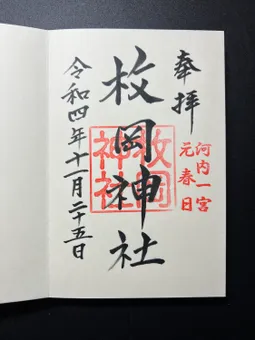 奉拝
河内一宮
元春日
枚岡神社
枚岡神社
令和四年十一月二十五日